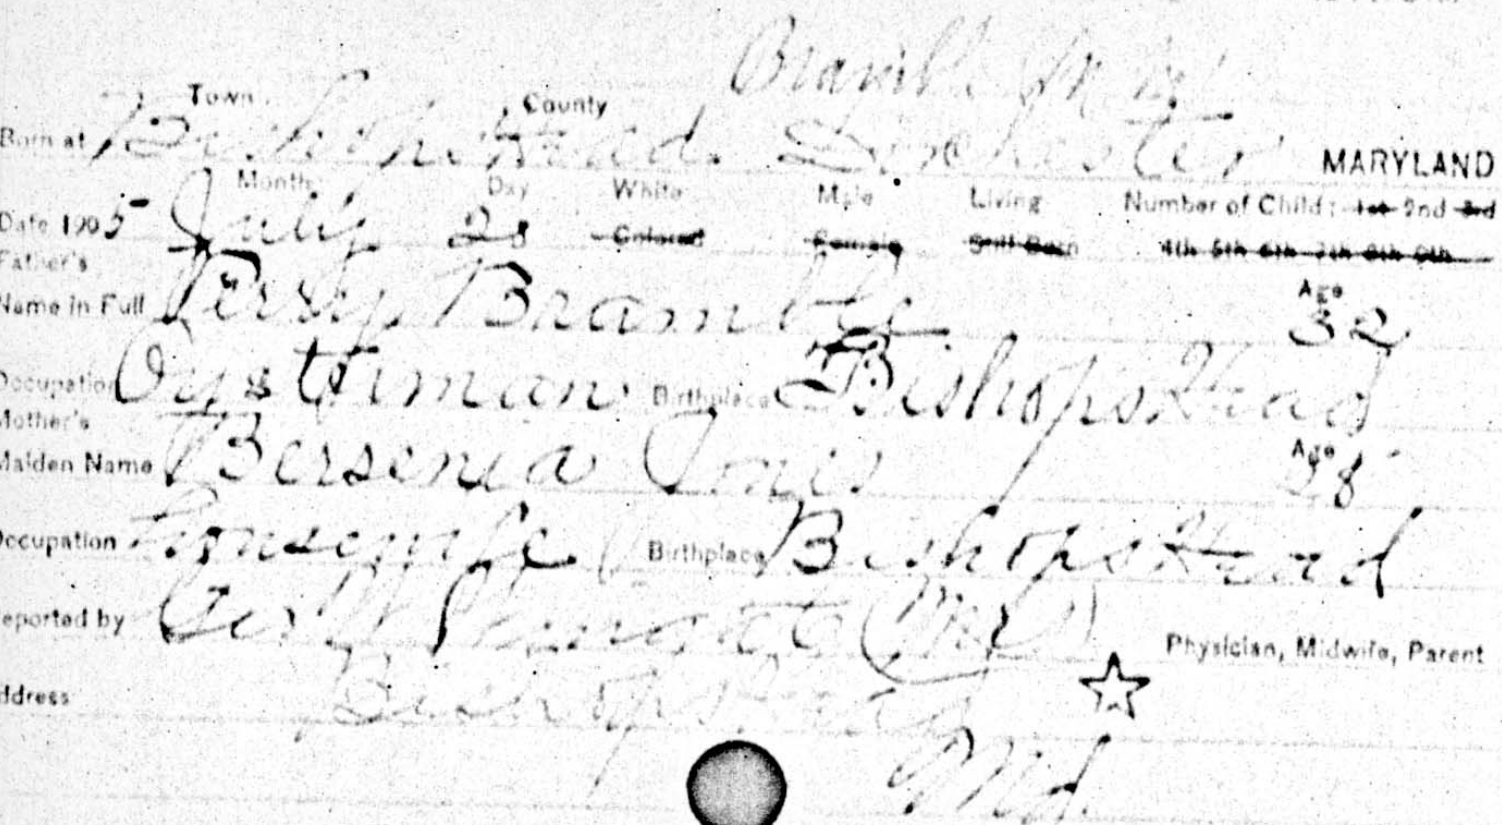 Bramble
Town County
Born at Bishops Head. Dorchester MARYLAND
Month Day White Male Living Number of Child: 1st 2nd 3rd
Date 1905 July 28 Colored Female Still Born 4th 5th 6th 7th 8th 9th
Father's
Name in Full Perry Bramble Age 32
Occupation Oysterman Birthplace Bishops Head
Mother's
Maiden Name Bersenia Age 28
Occupation Housewife Birthplace Bishops Head
Reported by Physician, Midwife, Parent
Address Bishops Head
Md.